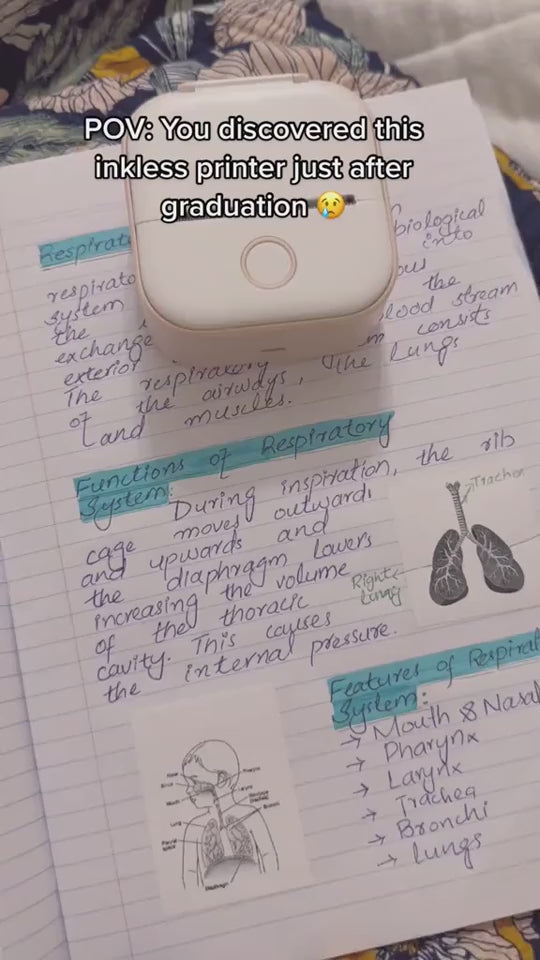 POV: You discovered this
inkless printer just after
graduation 😢
biological
respirato
into
system
ous
the
the
exchange
lood stream
exterior
m consists
The respiratory
of the airways, the lungs
and muscles.
Functions of Respiratory
System:
During inspiration, the rib
cage moves outward,
and upwards and
the diaphragm lowers
increasing the volume
of the thoracic
cavity. This causes
the internal pressure.
Trachea
Right
Lung
Features of Respirat
System:
→ Mouth & Nasal
→ Pharynx
→ Larynx
→ Trachea
→ Bronchi
→ Lungs
Nose
Pharynx
Mouth
Larynx
Trachea
Bronchi
Lung
Pleural
space
Diaphragm